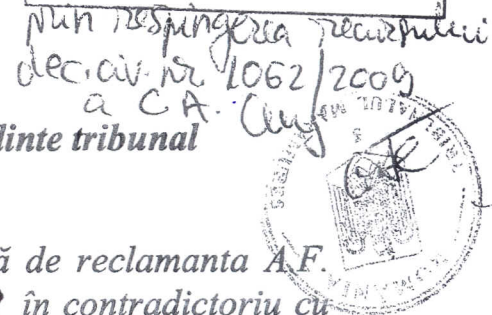 prin respingerea recursului
dec. civ. nr 1062/2009
a C.A. Cluj
linte tribunal
TRIBUNALUL
ROMÂNIA
ă de reclamanta A.F.
în contradictoriu cu